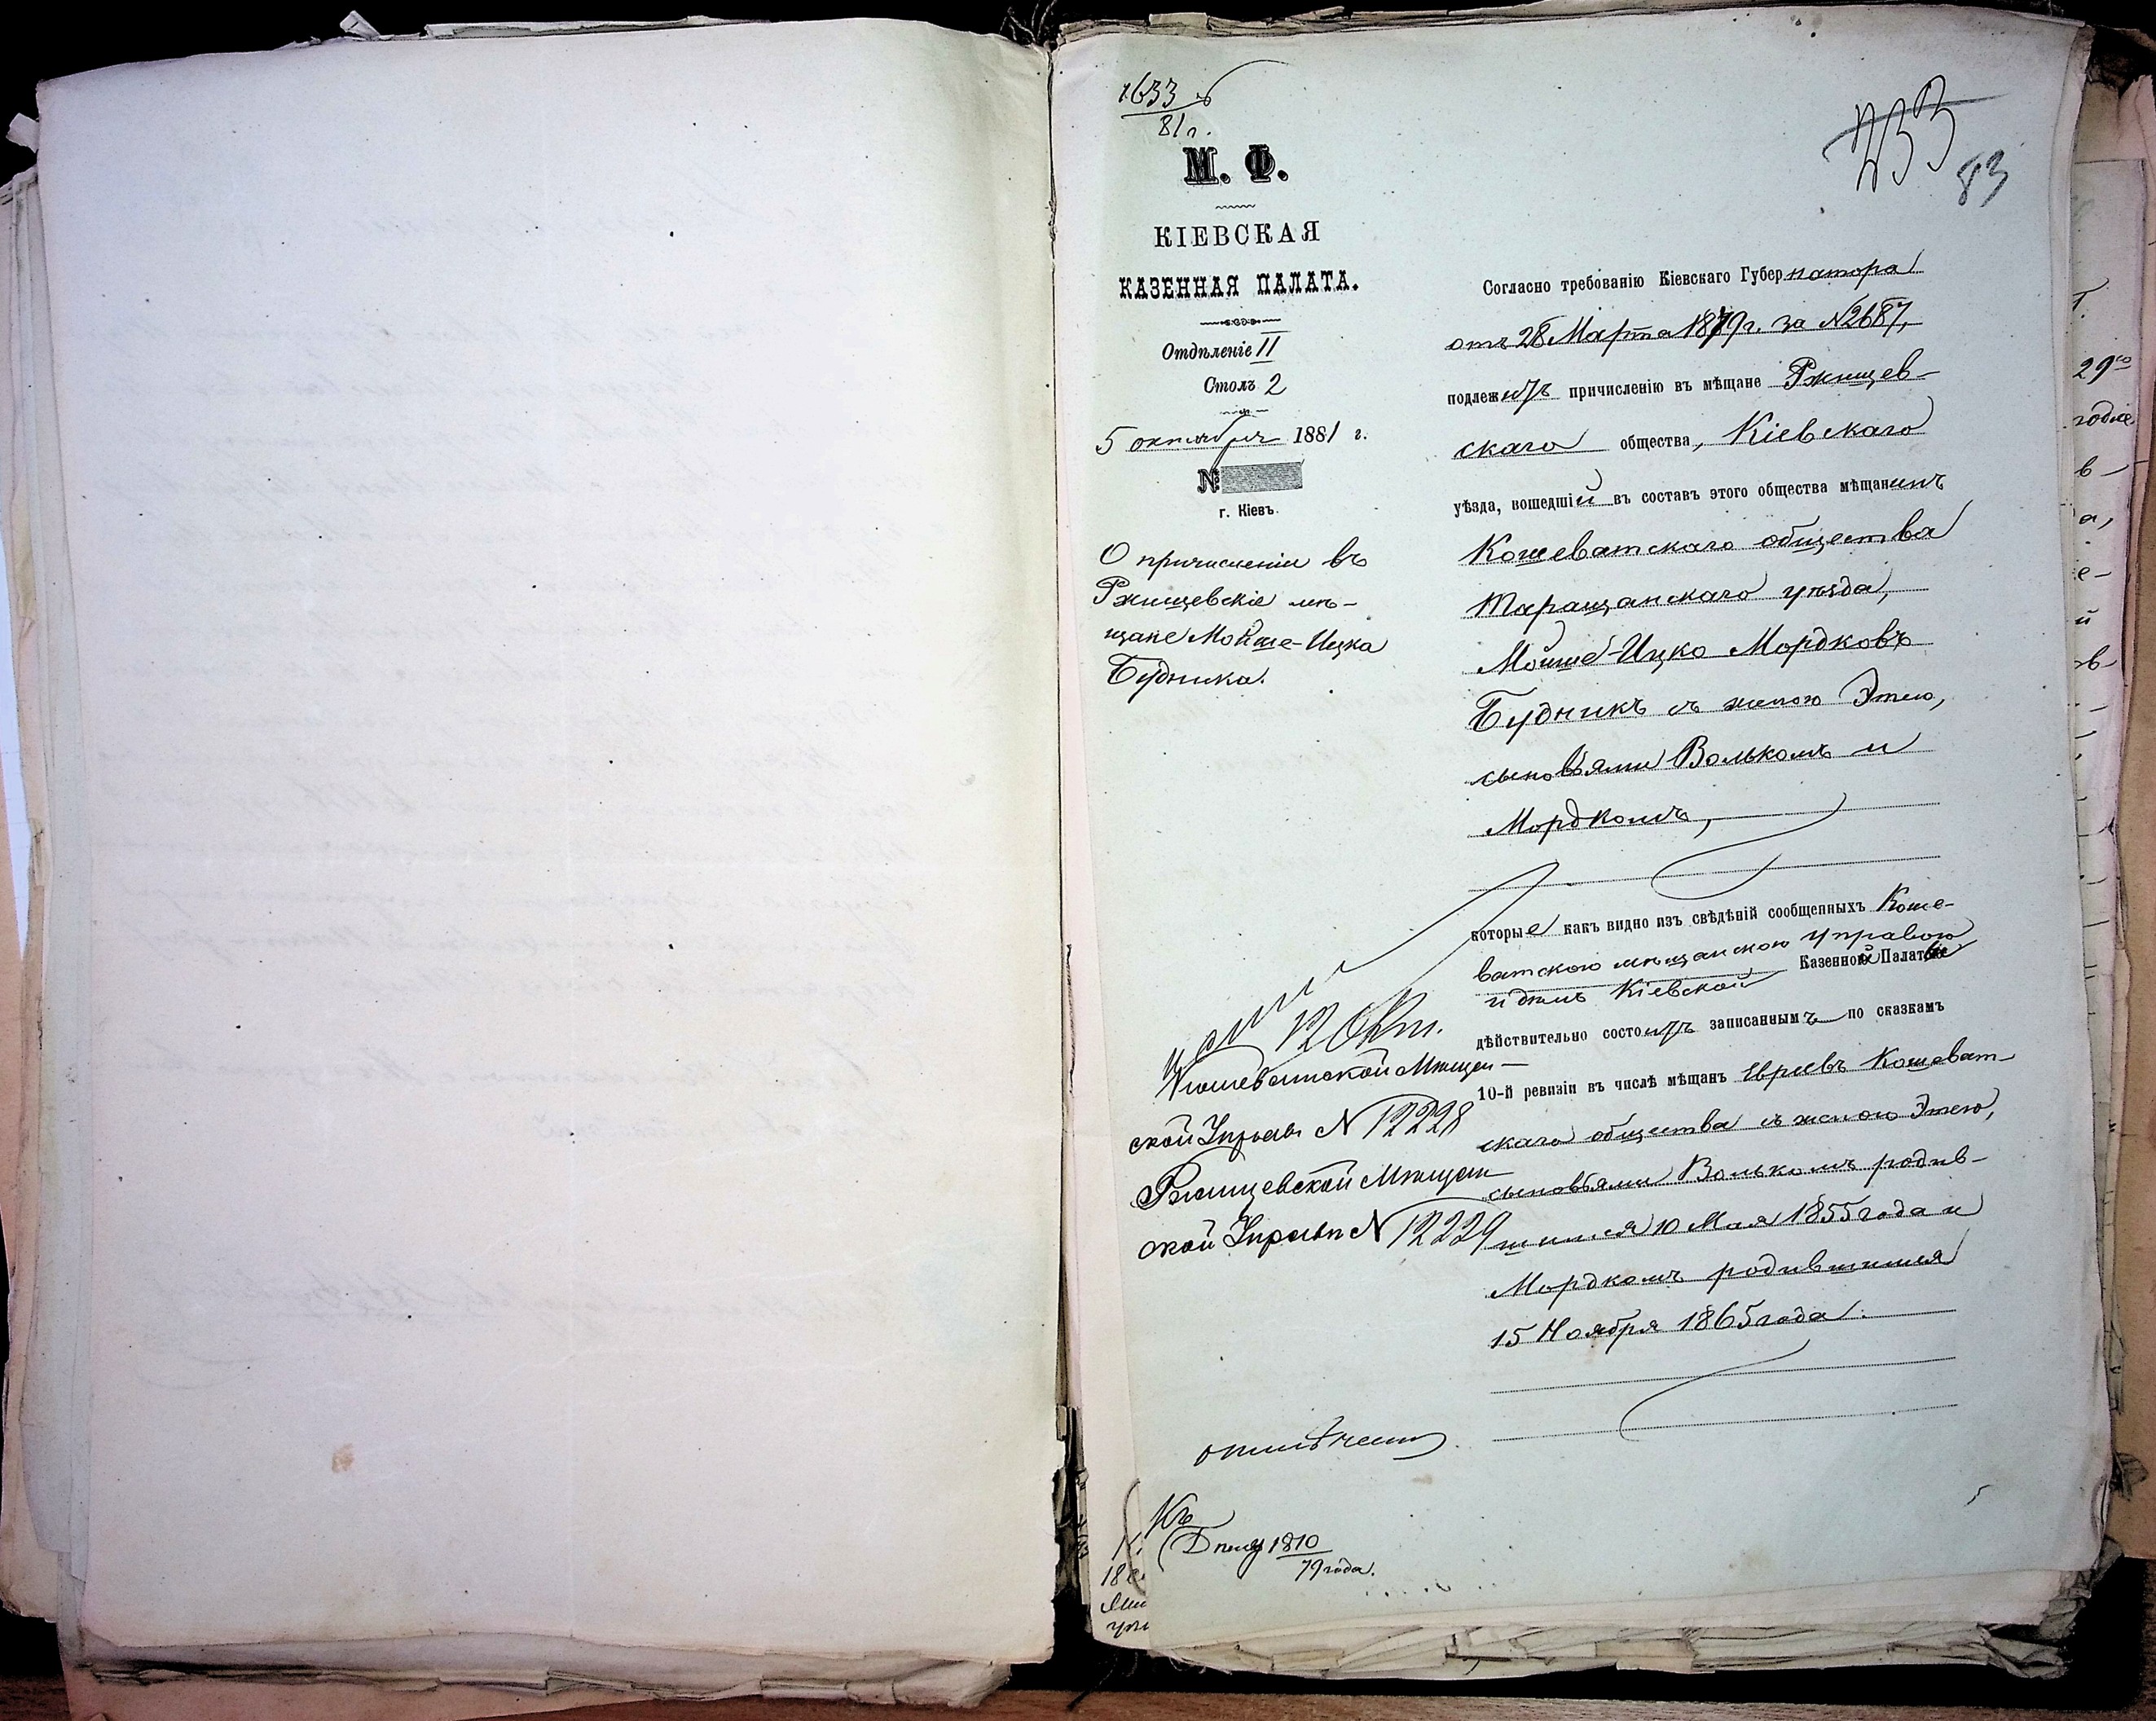 1633
81 г.
233
83
М. Ф.
КІЕВСКАЯ
КАЗЕННАЯ ПАЛАТА.
Отдѣленіе II
Столъ 2
5 октября 1881 г.
№
г. Кіевъ.
О причисленіи въ
Ржищевскіе мѣ-
щане Мойше-Ицка
Будника.
Согласно требованію Кіевскаго Губернатора
отъ 28 Марта 1879 г. за №2687,
подлежитъ причисленію въ мѣщане Ржищев-
скаго общества, Кіевскаго
уѣзда, вошедшій въ составъ этого общества мѣщанинъ
Кошеватскаго общества
Таращанскаго уѣзда,
Мойше-Ицко Мордковъ
Будникъ съ женою Этею,
сыновьями Волькомъ и
Мордкомъ,
которые какъ видно изъ свѣдѣній сообщенныхъ Коше-
ватскою мѣщанскою управою
и дѣлъ Кіевской Казенной Палаты
дѣйствительно состоитъ записаннымъ по сказкамъ
10-й ревизіи въ числѣ мѣщанъ Евреевъ Кошеват-
скаго общества съ женою Этею,
сыновьями Волькомъ родив-
шимся 10 Мая 1855 года и
Мордкомъ родившимся
15 Ноября 1865 года.
12 Окт.
Кошеватской Мѣщан-
ской Управѣ N 12228
Ржищевской Мѣщан-
ской Управѣ N 12229
отмѣчено.
Къ
Дѣлу 1810
79 года.
29го